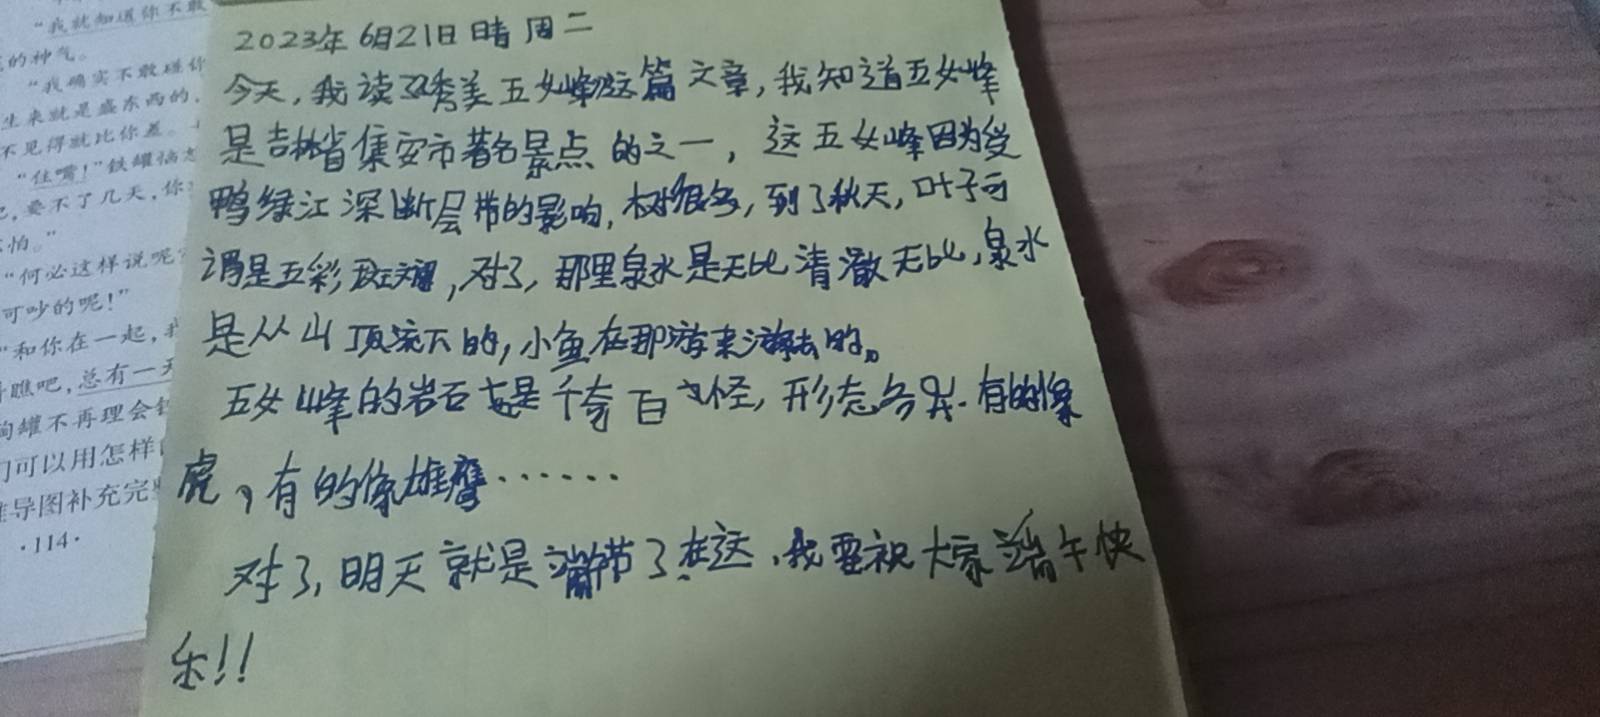 “我就知道你不敢
的神气。
“我确实不敢碰你
生来就是盛东西的，
不见得就比你差。
“住嘴！”铁罐恼
，要不了几天，你
怕。”
“何必这样说呢
可吵的呢！”
“和你在一起，我
瞧吧，总有一天
陶罐不再理会铁
们可以用怎样
维导图补充完整
·114·
2023年6月21日 晴 周二
今天，我读了秀美五女峰这篇文章，我知道五女峰
是吉林省集安市著名景点的之一，这五女峰因为受
鸭绿江深断层带的影响，树很多，到了秋天，叶子可
谓是五彩斑斓，对了，那里泉水是无比清澈无比，泉水
是从山顶流下的，小鱼在那游来游去的。
五女峰的岩石也是千奇百怪，形态各异.有的像
虎，有的像雄鹰……
对了，明天就是端午节了在这，我要祝大家端午快
乐！！